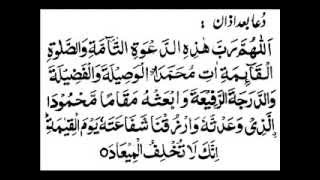 دُعا بعد اذان :
اَللّٰهُمَّ رَبَّ هٰذِهِ الدَّعْوَةِ التَّآمَّةِ وَالصَّلٰوةِ
الْقَآئِمَةِ اٰتِ مُحَمَّدَ اِ۟لْوَسِيْلَةَ وَالْفَضِيْلَةَ
وَالدَّرَجَةَ الرَّفِيْعَةَ وَابْعَثْهُ مَقَامًا مَّحْمُوْدَا
اِ۟لَّذِىْ وَعَدْتَّهٗ وَارْزُقْنَا شَفَاعَتَهٗ يَوْمَ الْقِيٰمَةِ
اِنَّكَ لَا تُخْلِفُ الْمِيْعَادَ ٥